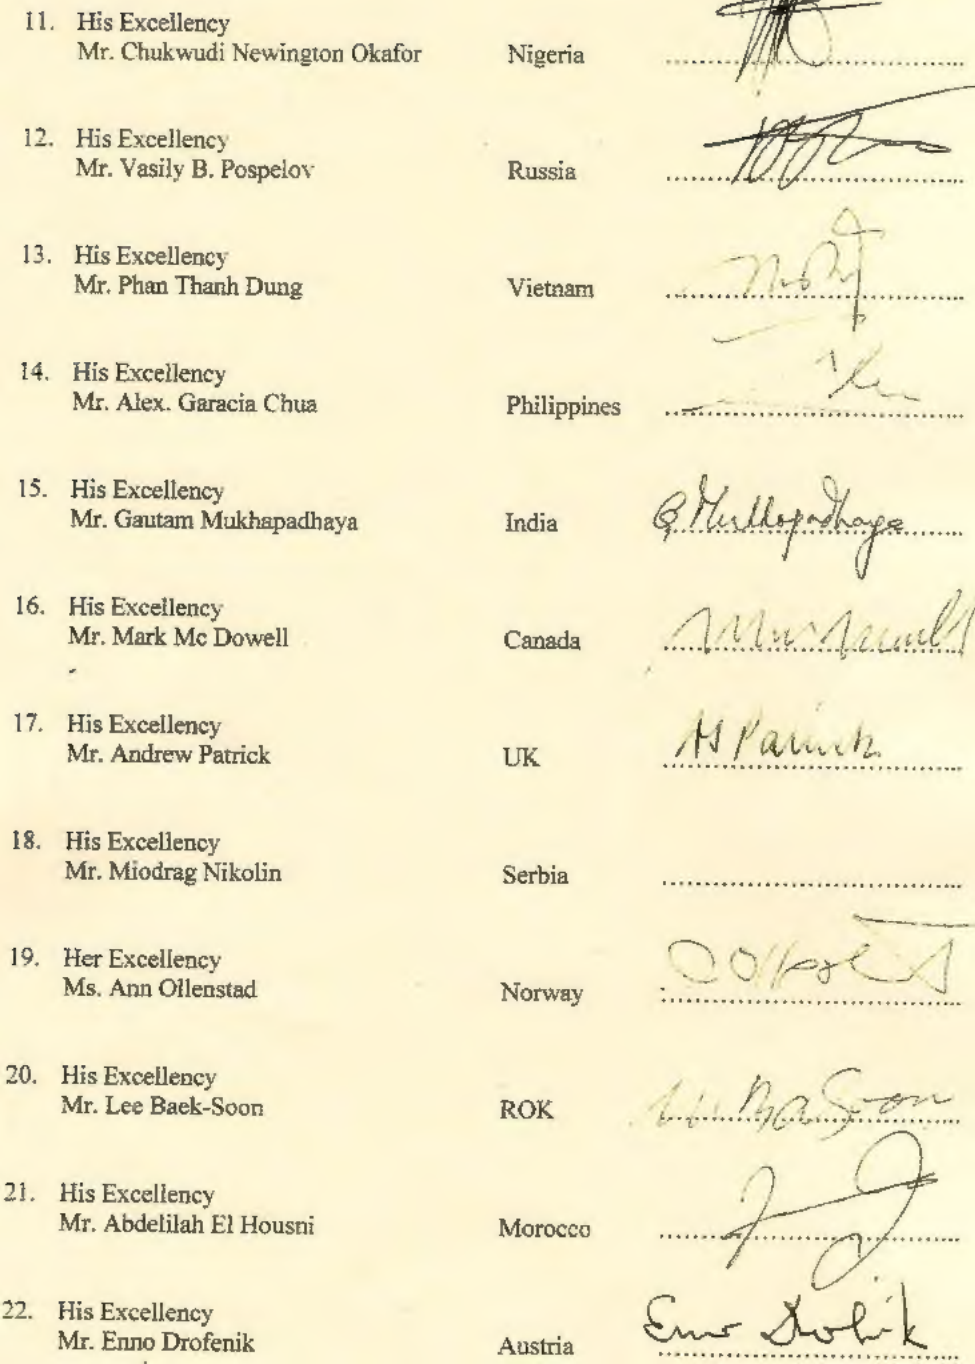 11. His Excellency
Mr. Chukwudi Newington Okafor Nigeria
12. His Excellency
Mr. Vasily B. Pospelov Russia
13. His Excellency
Mr. Phan Thanh Dung Vietnam
14. His Excellency
Mr. Alex. Garacia Chua Philippines
15. His Excellency
Mr. Gautam Mukhapadhaya India G Mukhopadhaya
16. His Excellency
Mr. Mark Mc Dowell Canada
17. His Excellency
Mr. Andrew Patrick UK AS Patrick
18. His Excellency
Mr. Miodrag Nikolin Serbia
19. Her Excellency
Ms. Ann Ollenstad Norway
20. His Excellency
Mr. Lee Baek-Soon ROK
21. His Excellency
Mr. Abdelilah El Housni Morocco
22. His Excellency
Mr. Enno Drofenik Austria